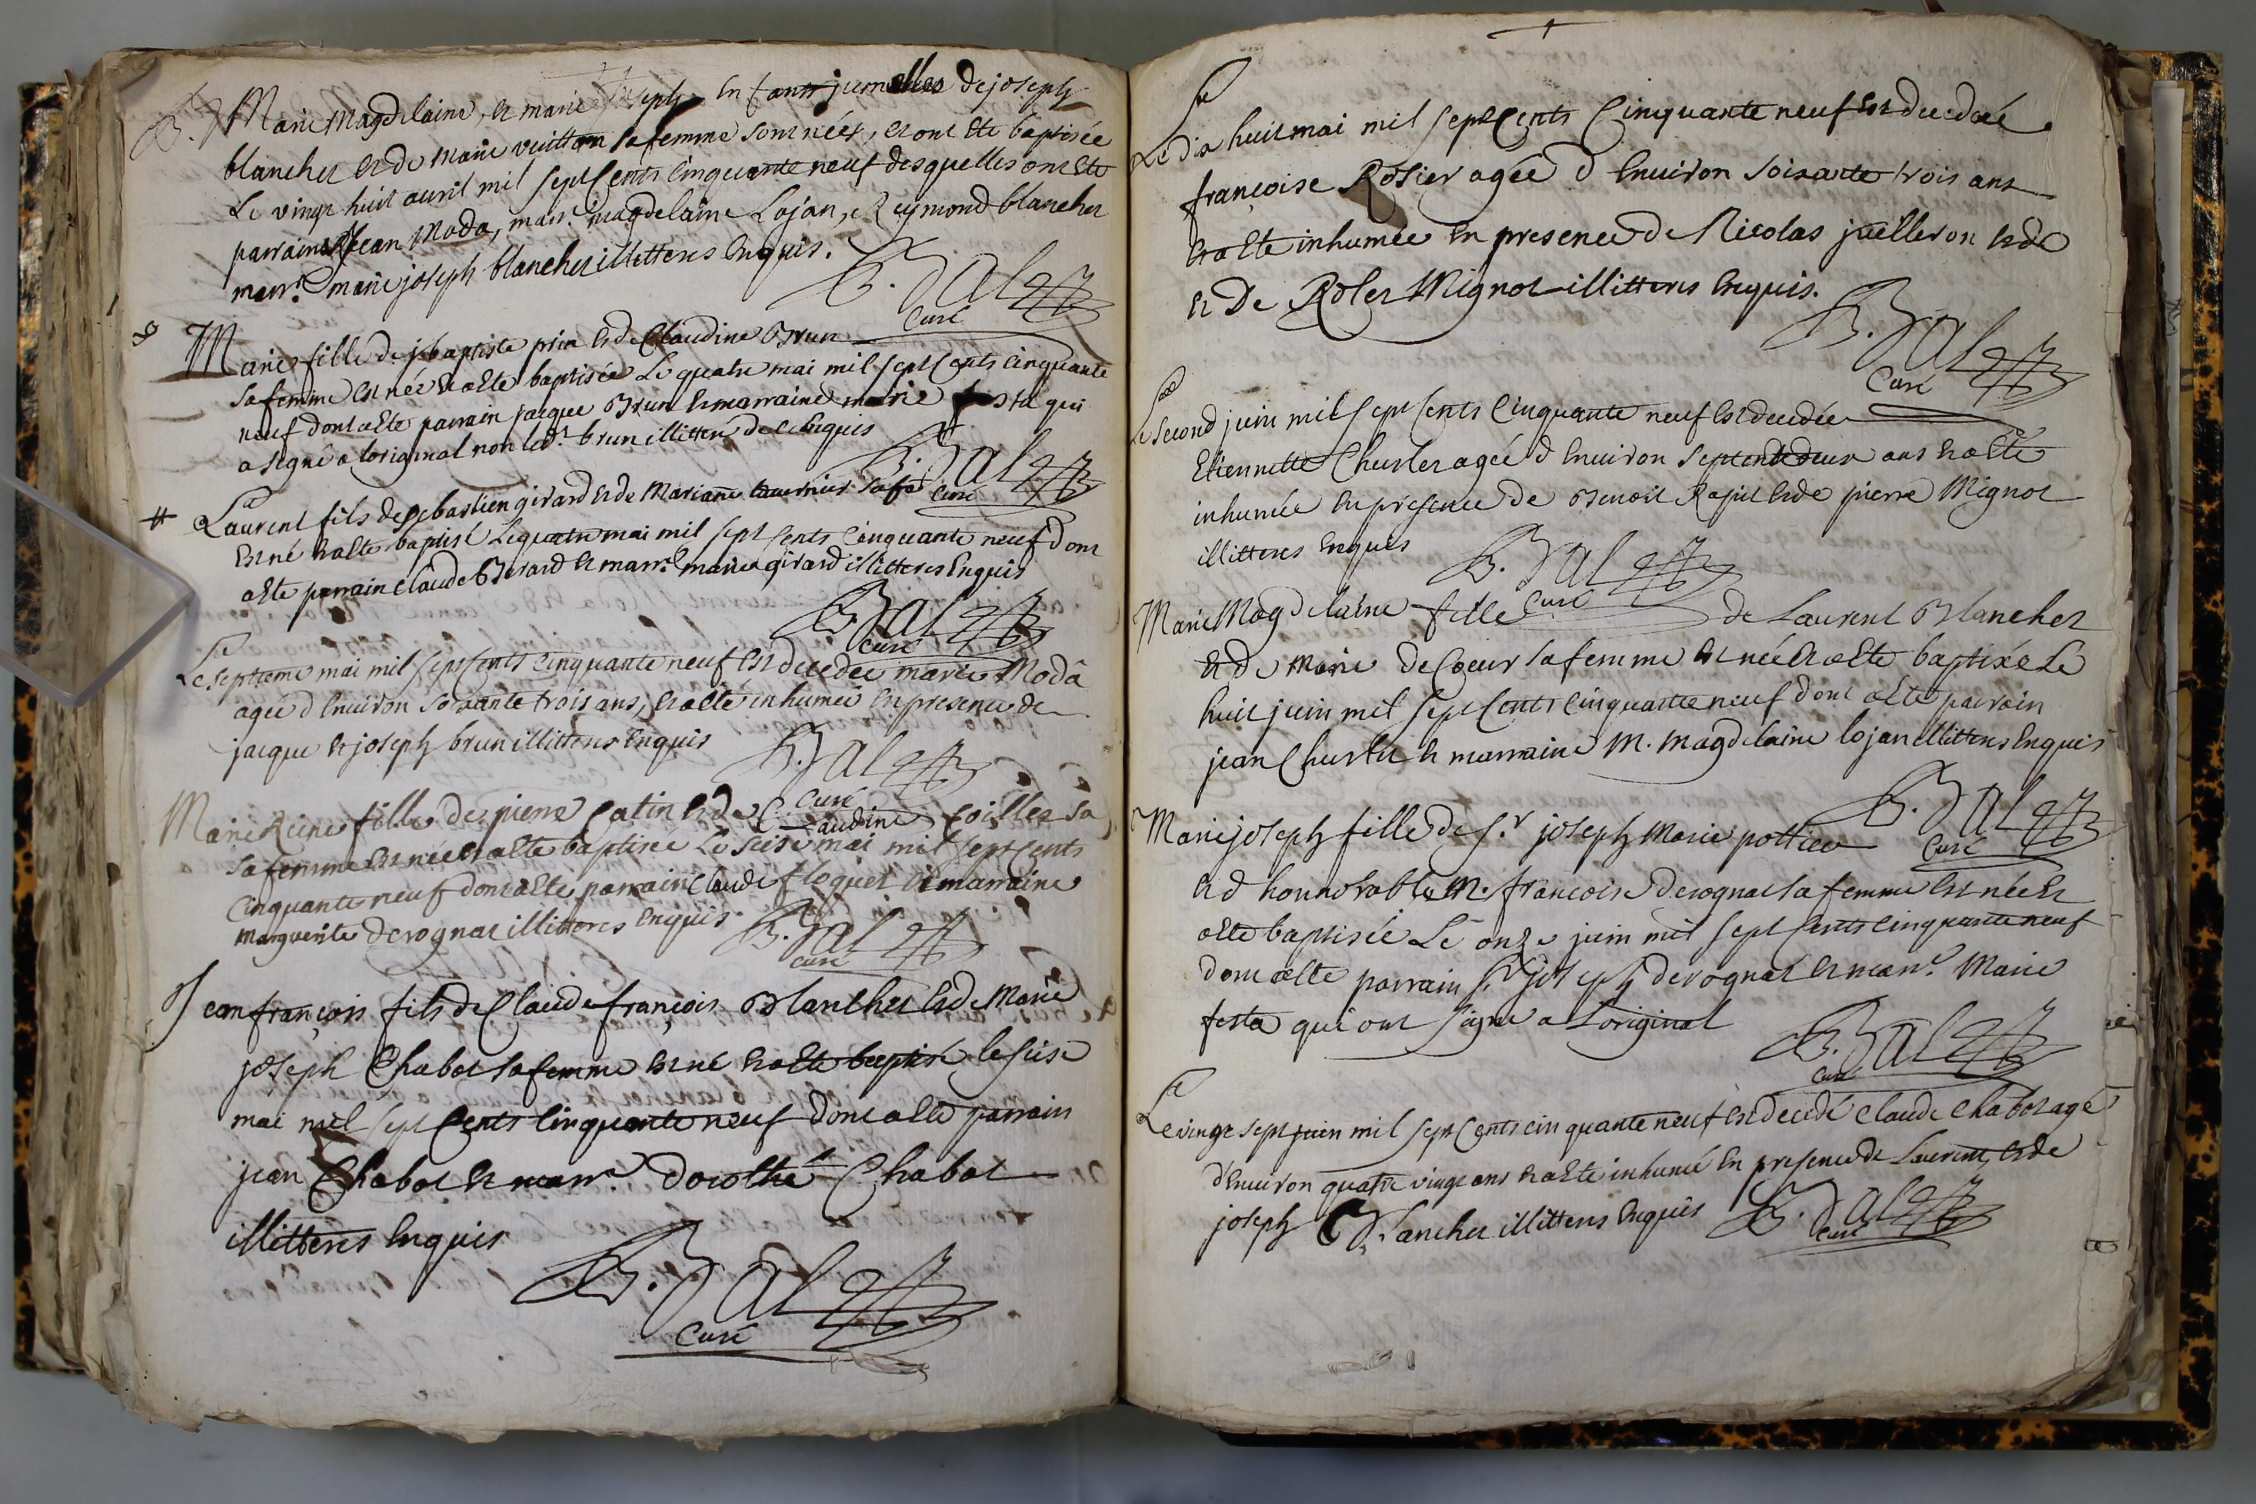 Marie Magdelaine, et marie joseph enfants jumelles de joseph
blanchet et de Marie vuitton sa femme sont nées, et ont ete baptisée
Le vingt huit avril mil sept Cents Cinquante neuf desquelles ont ete
parrains jean Moda, marr.e magdelaine Lojan, et Reymond blanchet
marr.e marie joseph blanchet illitteres Enquis.
B. Jalet
Curé
Marie fille de j baptiste prin et de Claudine Brun
sa femme est née et a ete baptisée Le quatre mai mil sept Cents Cinquante
neuf dont a ete parrain jacque Brun et marraine marie festa qui
a signé a loriginal non led.t brun illitteré de ce Enquis
B. Jalet
Curé
Laurent fils de sebastien girard et de Mariane tavernier sa fe
Est né et a ete baptisé Le quatre mai mil sept Cents Cinquante neuf dont
a ete parrain Claude Berard et marr.e marie girard illitteres Enquis
B. Jalet
Curé
Le septieme mai mil sept Cents Cinquante neuf est decedée marie Modâ
agée d Environ soixante trois ans, et a eté inhumée En presence de
jacque et joseph brun illitteres Enquis
B. Jalet
Curé
Marie Reine fille de pierre Catin et de Claudine Coillet sa
sa femme est née et a ete baptisée Le seise mai mil sept Cents
Cinquante neuf dont a ete parrain Claude floquet et marraine
Marguerite Derognat illitteres Enquis
B. Jalet
Curé
Jean françois fils de Claude françois Blanchet et de Marie
joseph Chabot sa femme est né et a ete baptisé le seise
mai mil sept Cents Cinquante neuf dont a ete parrain
jean Chabot et marr.e dorothé Chabot
illitteres Enquis
B. Jalet
Curé
Le dix huit mai mil sept Cents Cinquante neuf est decedée
françoise Rosier agée d Environ soixante trois ans
et a ete inhumée En presence de Nicolas juilleron et de
et de Rolet Mignot illitteres Enquis.
B. Jalet
Curé
Le second juin mil sept Cents Cinquante neuf est decedée
Etiennette Chustet agée d Environ septente deux ans et a eté
inhumée En presence de Benoit Rapit et de pierre Mignot
illitteres Enquis
B. Jalet
Curé
Marie Magdelaine fille de Laurent Blanchet
et de Marie deCoeur sa femme est née et a ete baptixé Le
huit juin mil sept Cents Cinquante neuf dont a ete parrain
jean Chustet et marraine M. Magdelaine lojan illitteres Enquis
B. Jalet
Curé
Marie joseph fille de s.r joseph Marie pottier
et d honnorable M. françoise derognat sa femme est née et
a ete baptisée Le onze juin mil sept Cents Cinquante neuf
dont a ete parrain s.r joseph derognat et marr.e Marie
festa qui ont signé a Loriginal
B. Jalet
Curé
Le vingt sept juin mil sept Cents cinquante neuf est decedé Claude Chabot agé
d'Environ quatre vingt ans et a ete inhumé En presence de Laurent et de
joseph Blanchet illitteres Enquis
B. Jalet
Curé